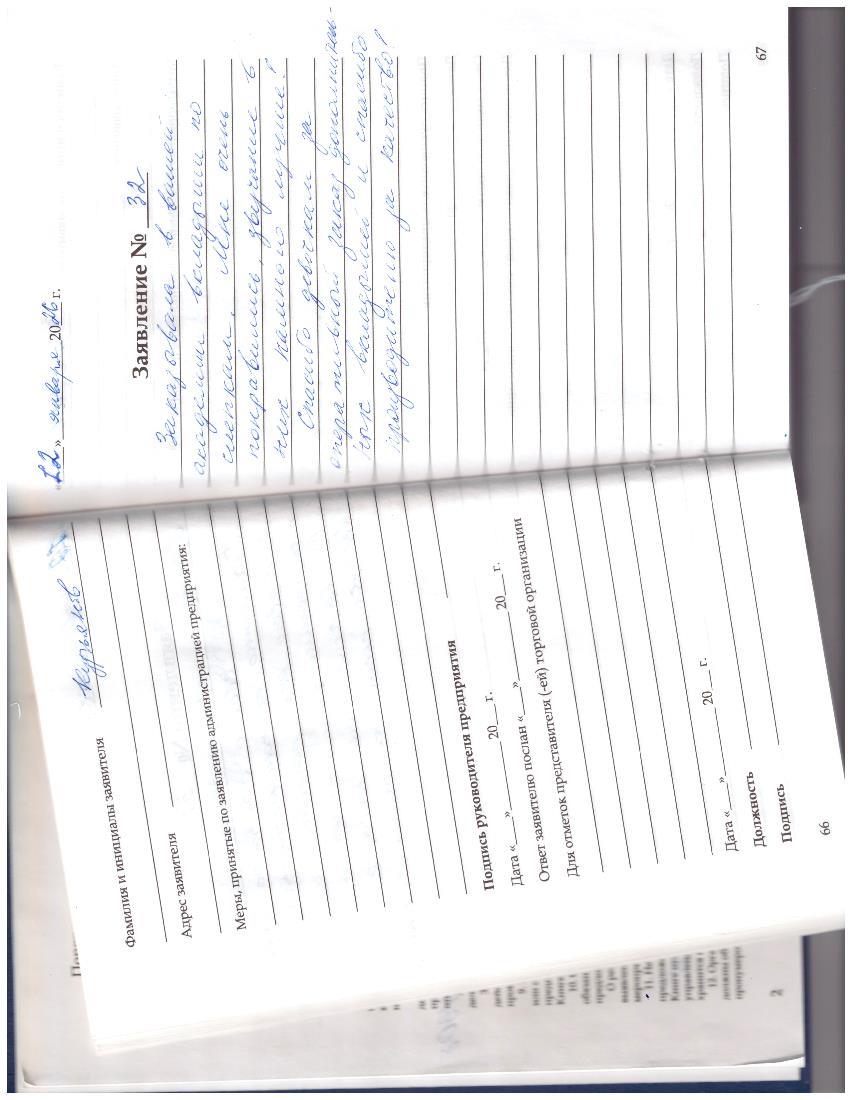 Фамилия и инициалы заявителя Курьянов
Адрес заявителя
Меры, принятые по заявлению администрацией предприятия:
Подпись руководителя предприятия
Дата «___»________20___ г.
Ответ заявителю послан «___»________20___ г.
Для отметок представителя (-ей) торговой организации
Дата «___»________20___ г.
Должность
Подпись
66
«22» января 2026 г.
Заявление № 32
Заказывала в вашей
академии вкладыши по
слепкам. Мне очень
понравились, звучание в
них намного лучше!
Спасибо девочкам за
оперативный заказ дополнитель-
ных вкладышей и спасибо
производителю за качество!
67
2